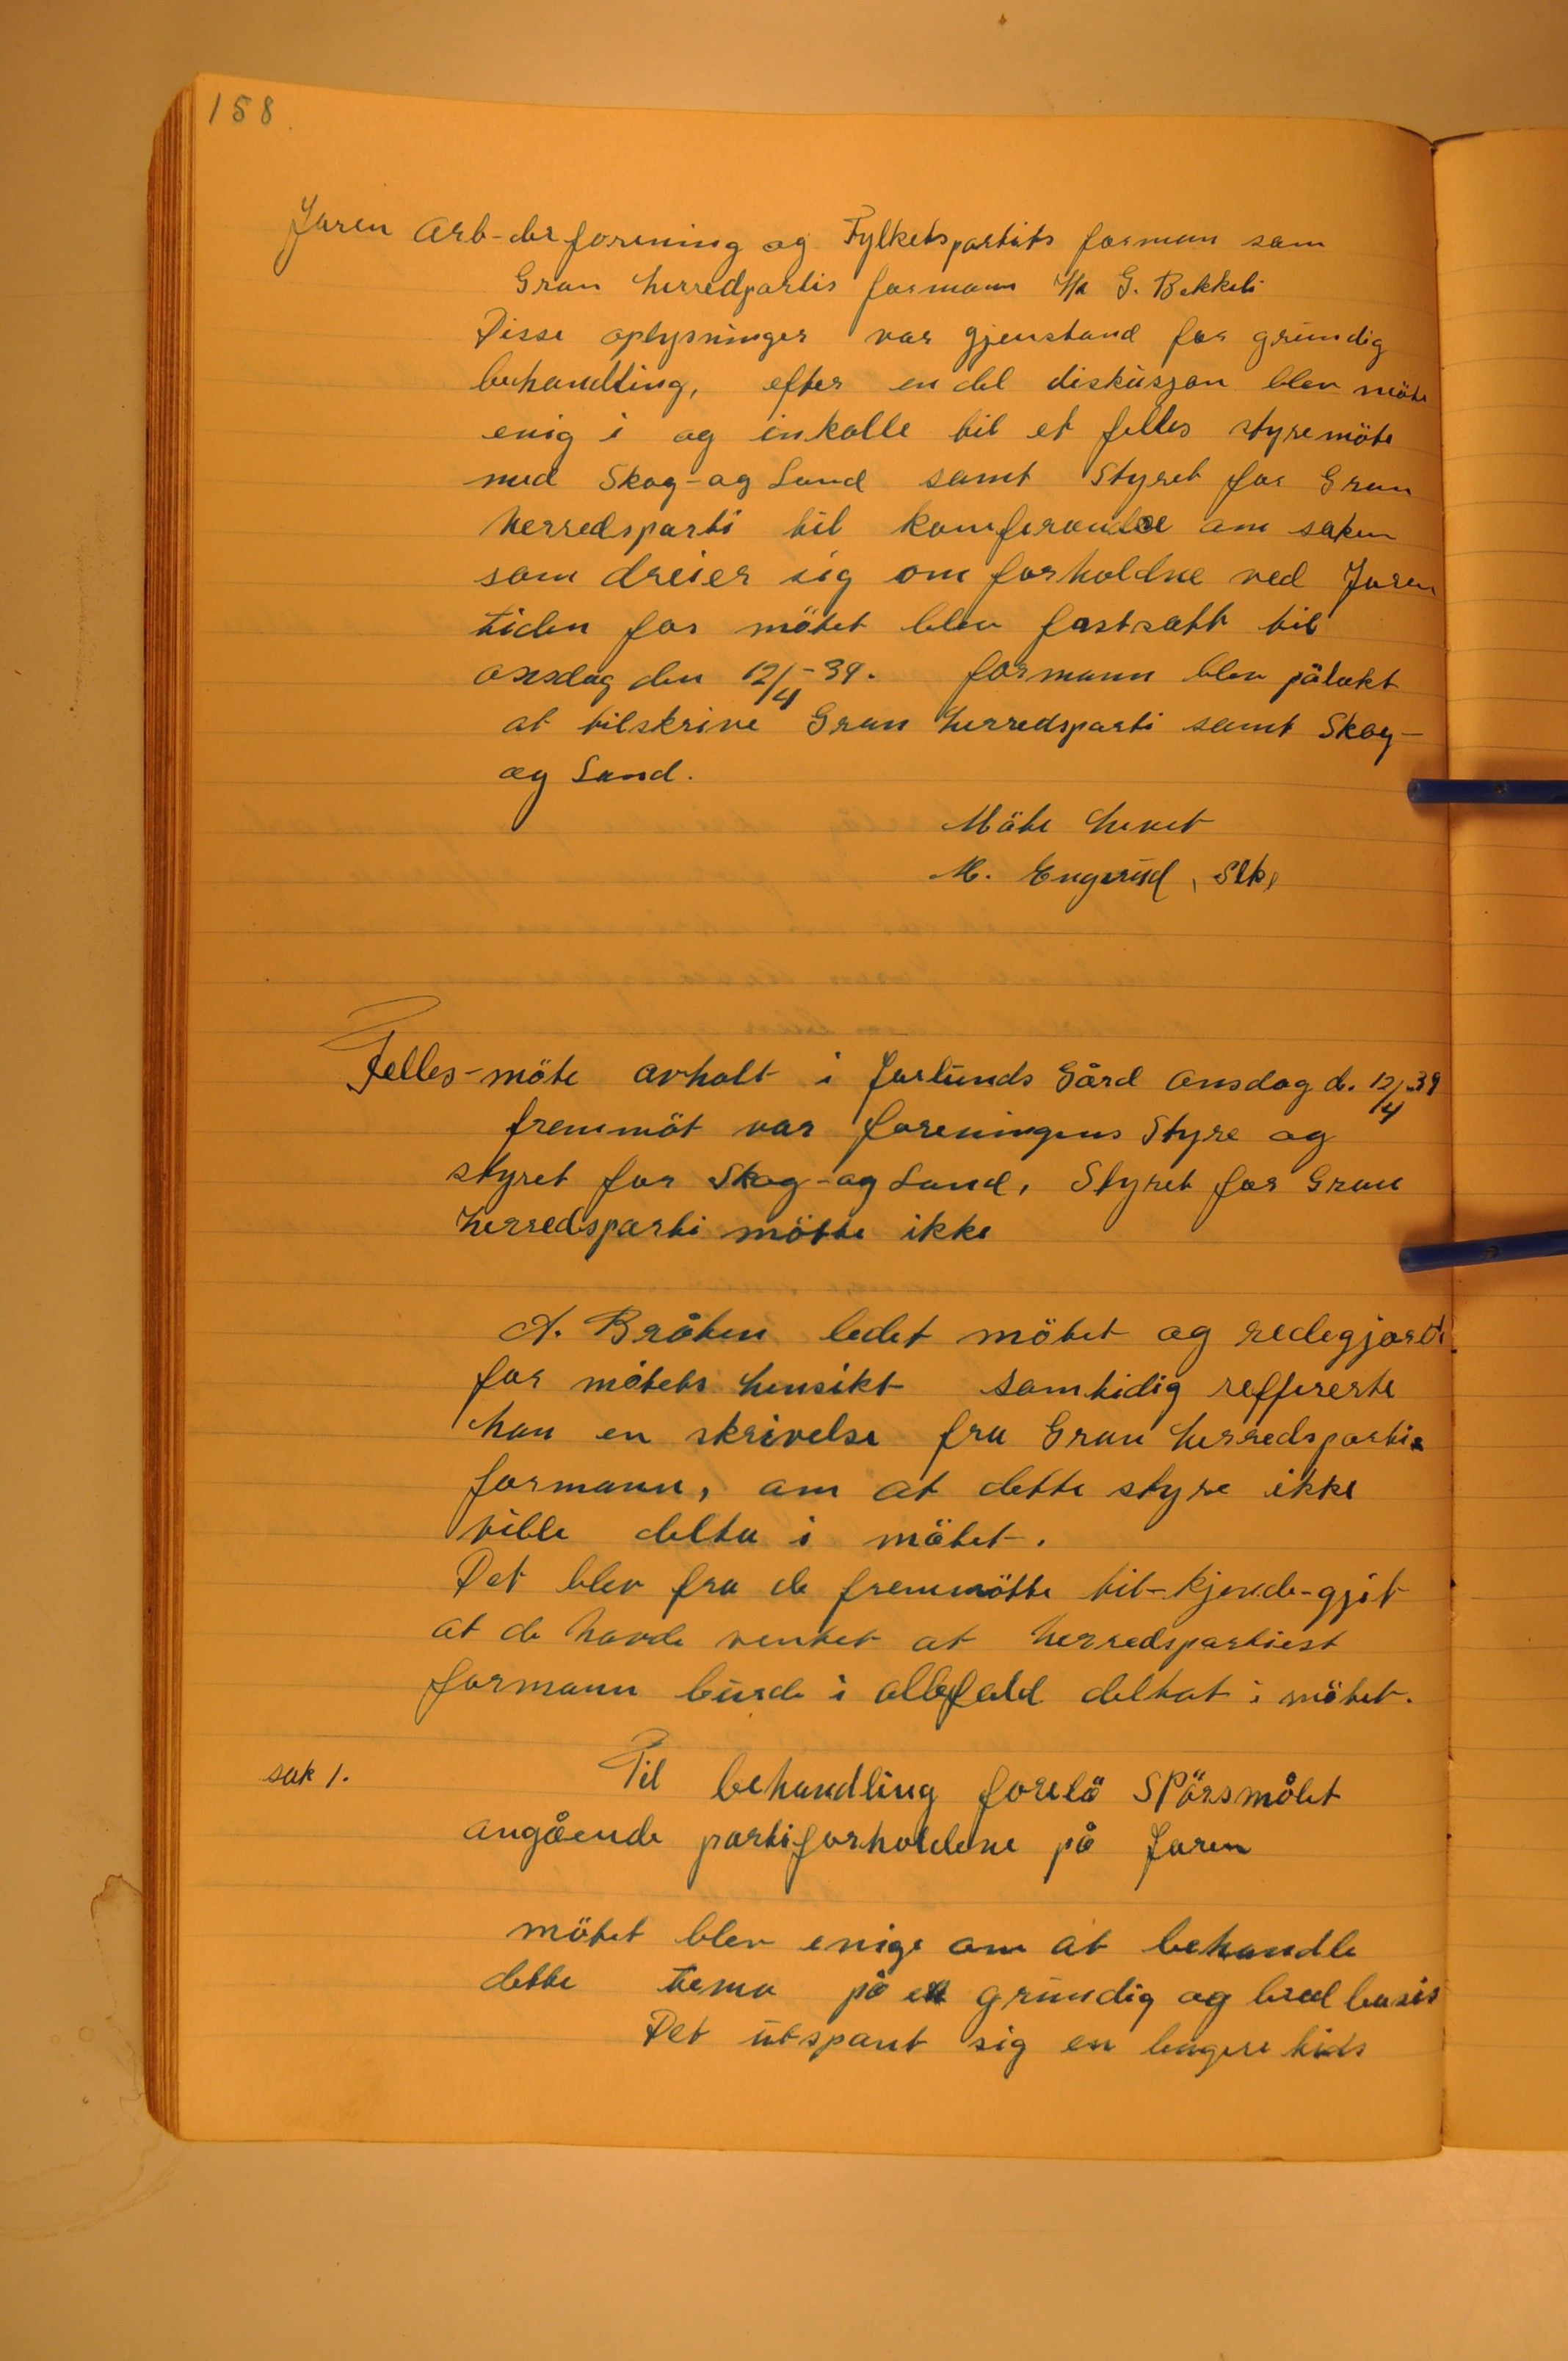 158.
Jaren Arb-derforening og Fylketspartiets forman som
Gran herredpartis formann Hr G. Bekkeli
Disse oplysninger var gjenstand for grundig
behandling, efter en del diskusjon blev möte
enig i og inkalle til et felles styremöte
med Skog-og Land samt Styret for Gran
herredsparti til konferandse om saken
som dreier sig om forholdne ved Jaren
tiden for mötet blev fastsatt til
onsdag den 12/4-39. formann blev pålakt
at tilskrive Gran herredsparti samt Skog-
og Land.
Möte hevet
M. Engerud, Sek,
Felles-möte avholt i Jarlunds Gård Onsdag d. 12/4-39
fremmöt var foreningens Styre og
styret for Skog-og Land, Styret for Gran
herredsparti mötte ikke
A. Bråten ledet mötet og redegjorde
for mötets hensikt samtidig reffererte
han en skrivelse fra Gran herredspartis
formann, om at dette styre ikke
ville delta i mötet.
Det blev fra de fremmötte til-kjende-gjit
at de havde ventet at herredspartiest
formann burde i allefald deltat i mötet.
sak 1.
Til behandling forelå SPörsmålet
angående partiforholdene på Jaren
mötet blev enige om at behandle
dette tema på en grundig og bred basis
Det utspant sig en lengere tids